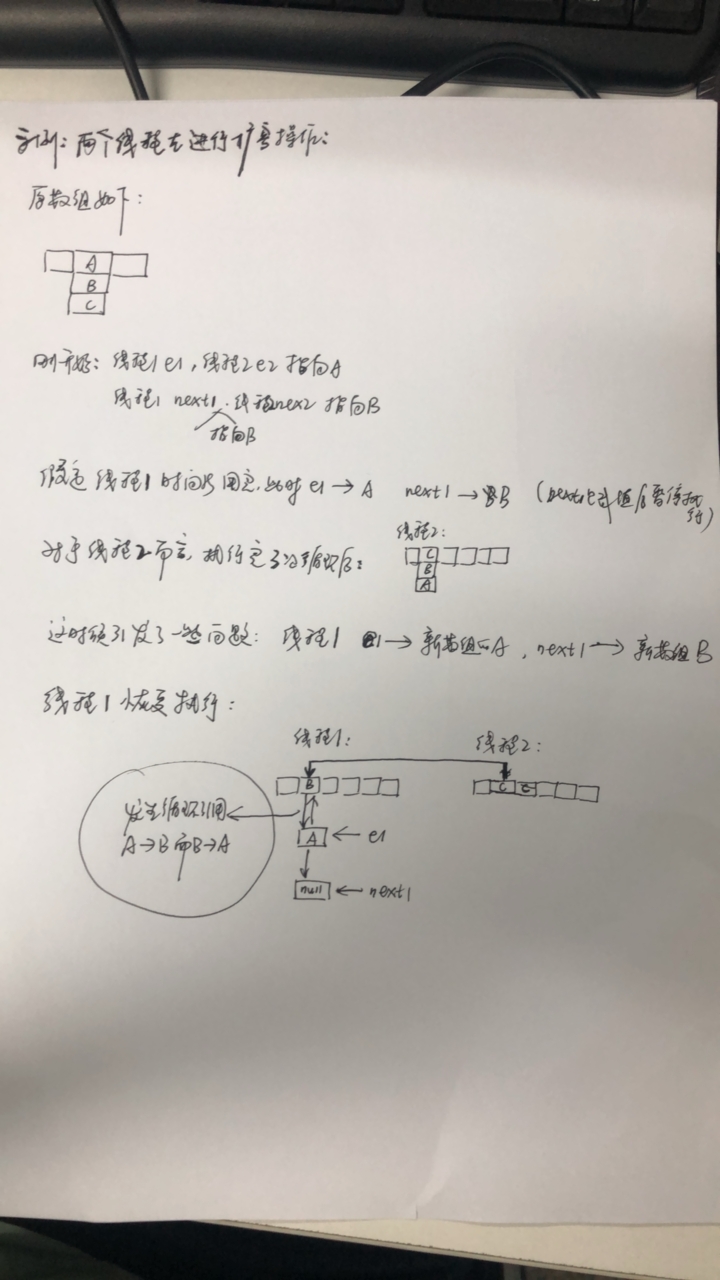 示例：两个线程在进行扩容操作：
原数组如下：
A
B
C
刚开始：线程1 e1，线程2 e2 指向A
线程1 next1 . 线程nex2 指向B
指向B
假定线程1时间片用完，此时 e1 → A next1 → B (next1 赋值后暂停执行)
对于线程2而言，执行完了以循环后：
线程2：
C
B
A
这时候引发了一些问题：线程1 e1 → 新数组的A，next1 → 新数组B
线程1恢复执行：
线程1： 线程2：
B C
发生循环引用 A ← e1
A→B 而B→A
null ← next1